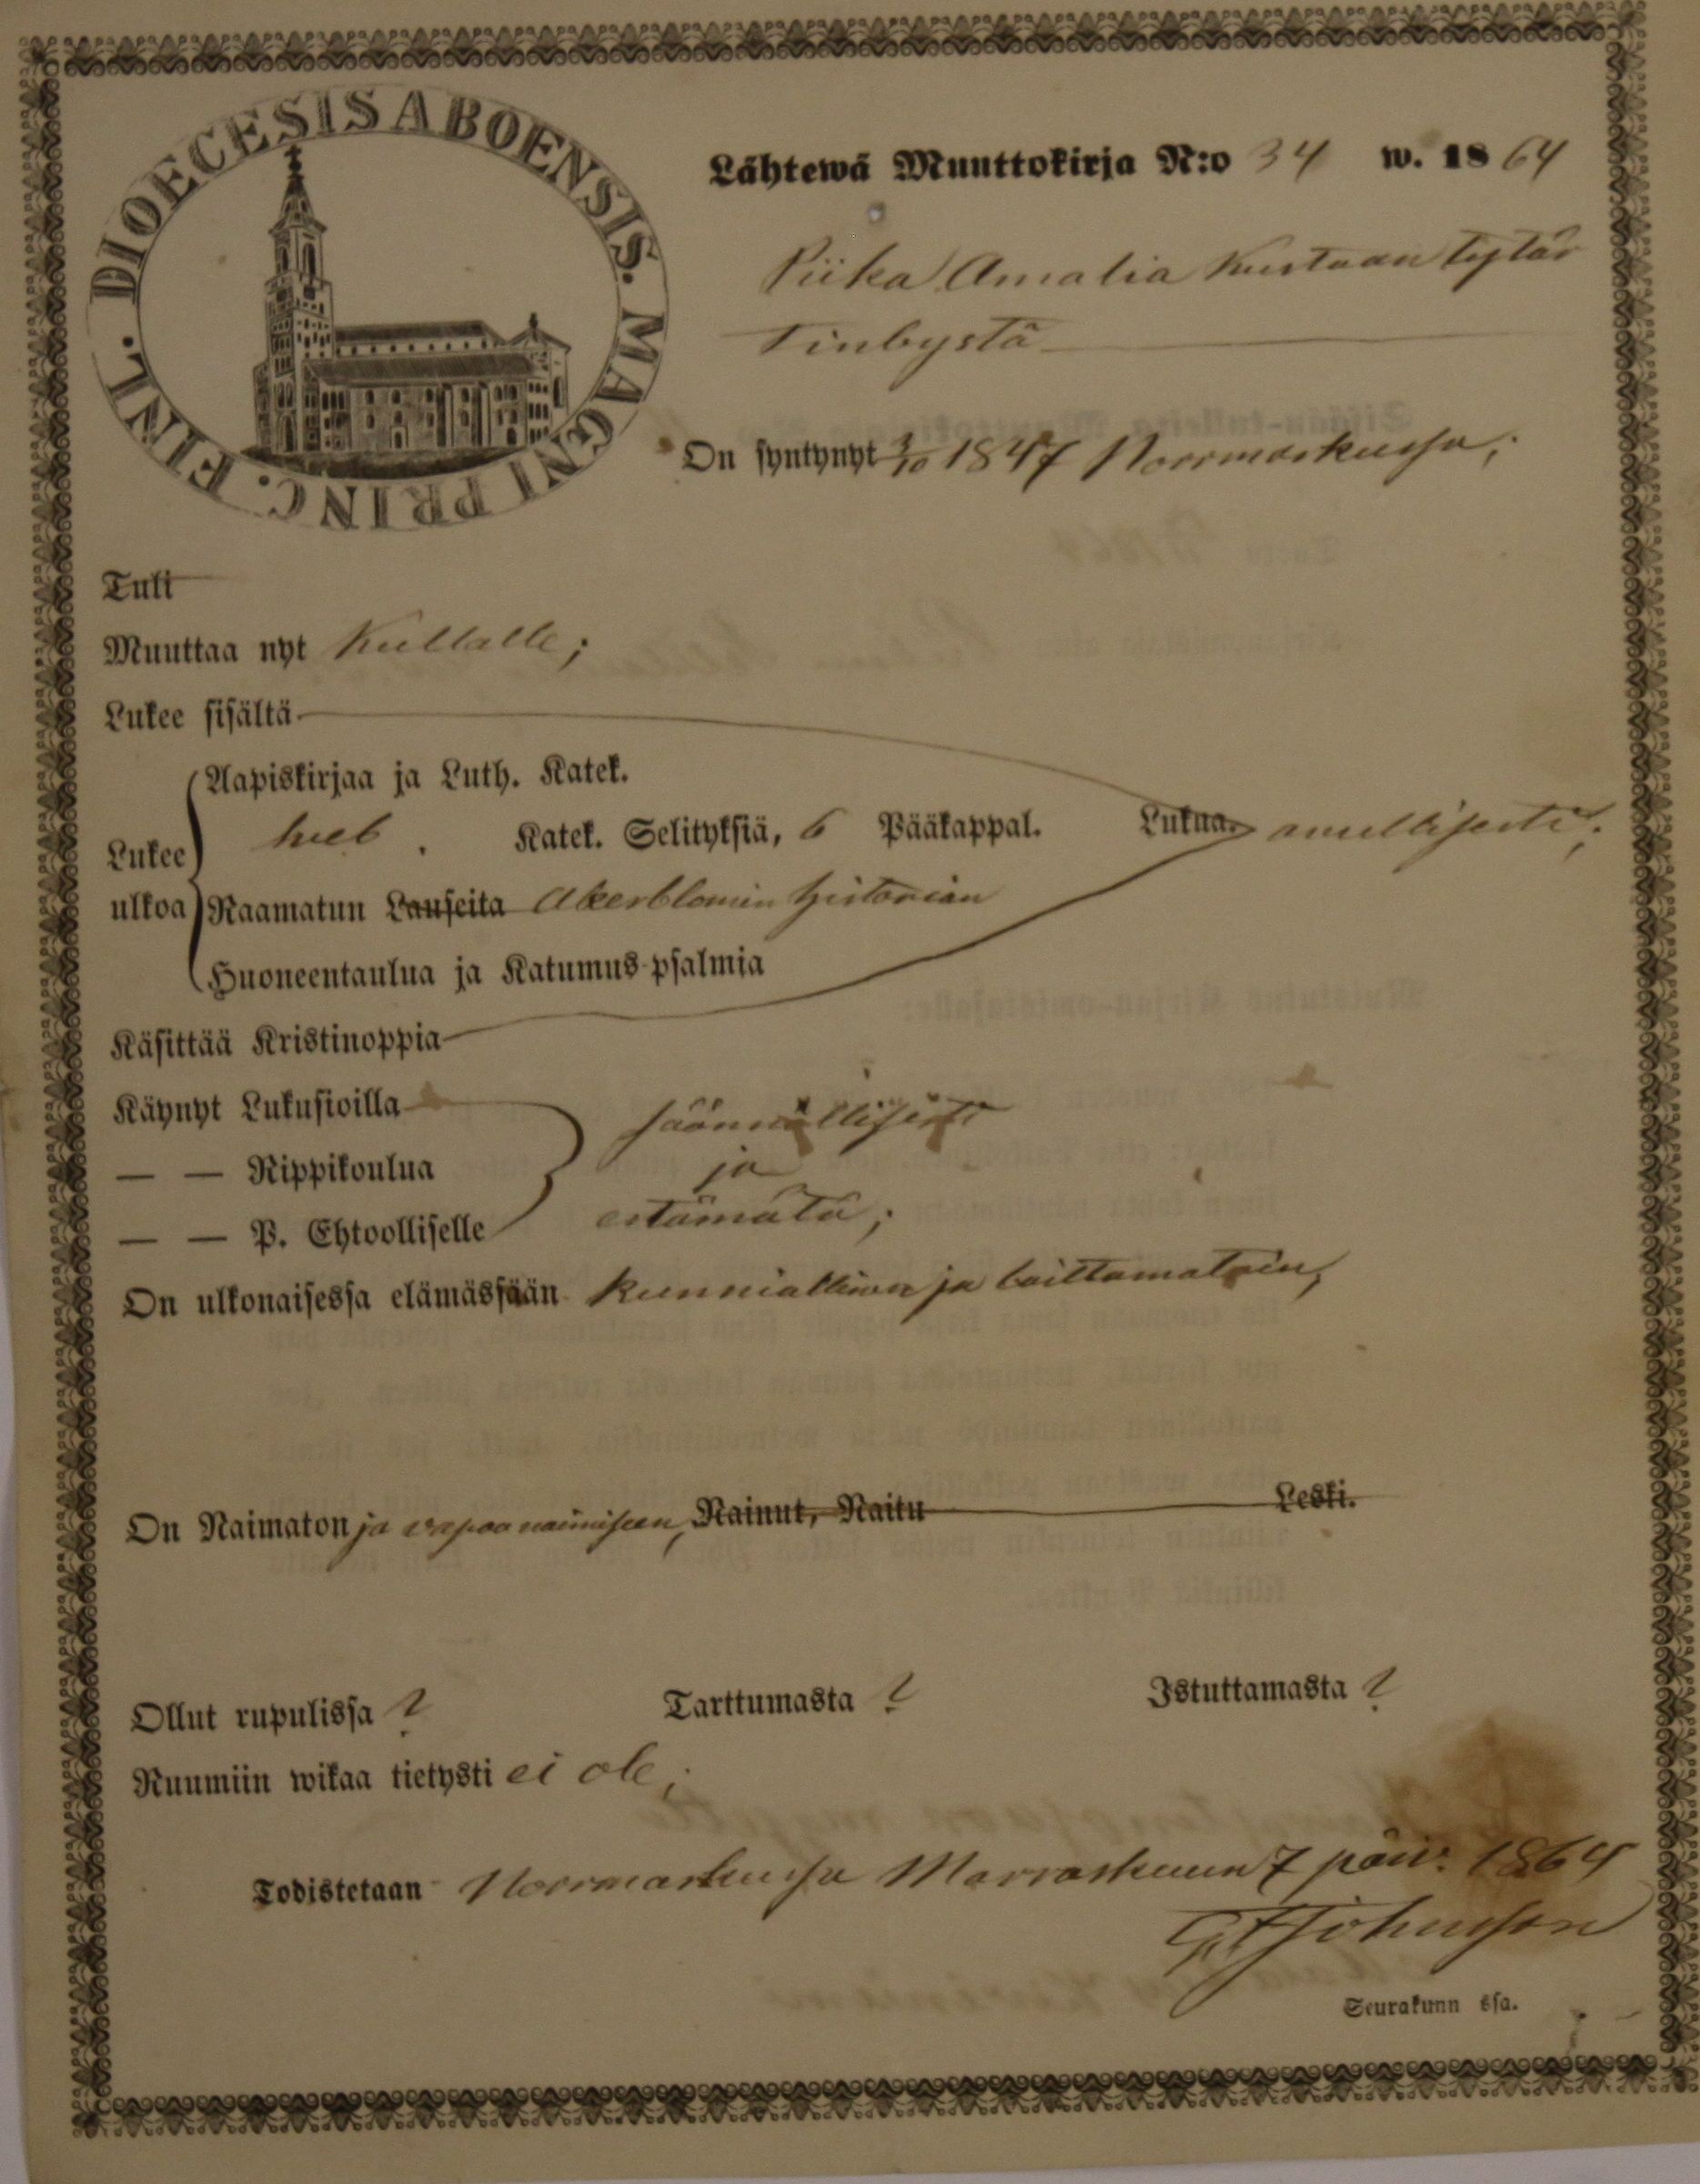 DIOECESIS ABOENSIS. MAGNI PRINC. FINL.
Lähtewä Muuttokirja N:o 34 w. 1864
Piika Amalia Kustaan tytär
Finbystä
On syntynyt 3/10 1847 Norrmarkussa;
Tuli
Muuttaa nyt Kullalle;
Lukee sisältä
Aapiskirjaa ja Luth. Katek.
Lukee ulkoa
Katek. Selityksiä, 6 Pääkappal. Lukua.
Raamatun Lauseita Akerblomin historian
Huoneentaulua ja Katumus-psalmia
Käsittää Kristinoppia
Käynyt Lukusioilla säännöllisesti
— — Rippikoulua ja
— — P. Ehtoolliselle estämätä;
On ulkonaisessa elämässään kunniallinen ja laittamatoin,
On Naimaton ja vapaa naimiseen, Nainut, Naitu Leski.
Ollut rupulissa ? Tarttumasta ? Istuttamasta ?
Ruumiin wikaa tietysti ei ole;
Todistetaan Norrmarkussa Marraskuun 7 päiv. 1864
Johnsson
Seurakunn ssa.